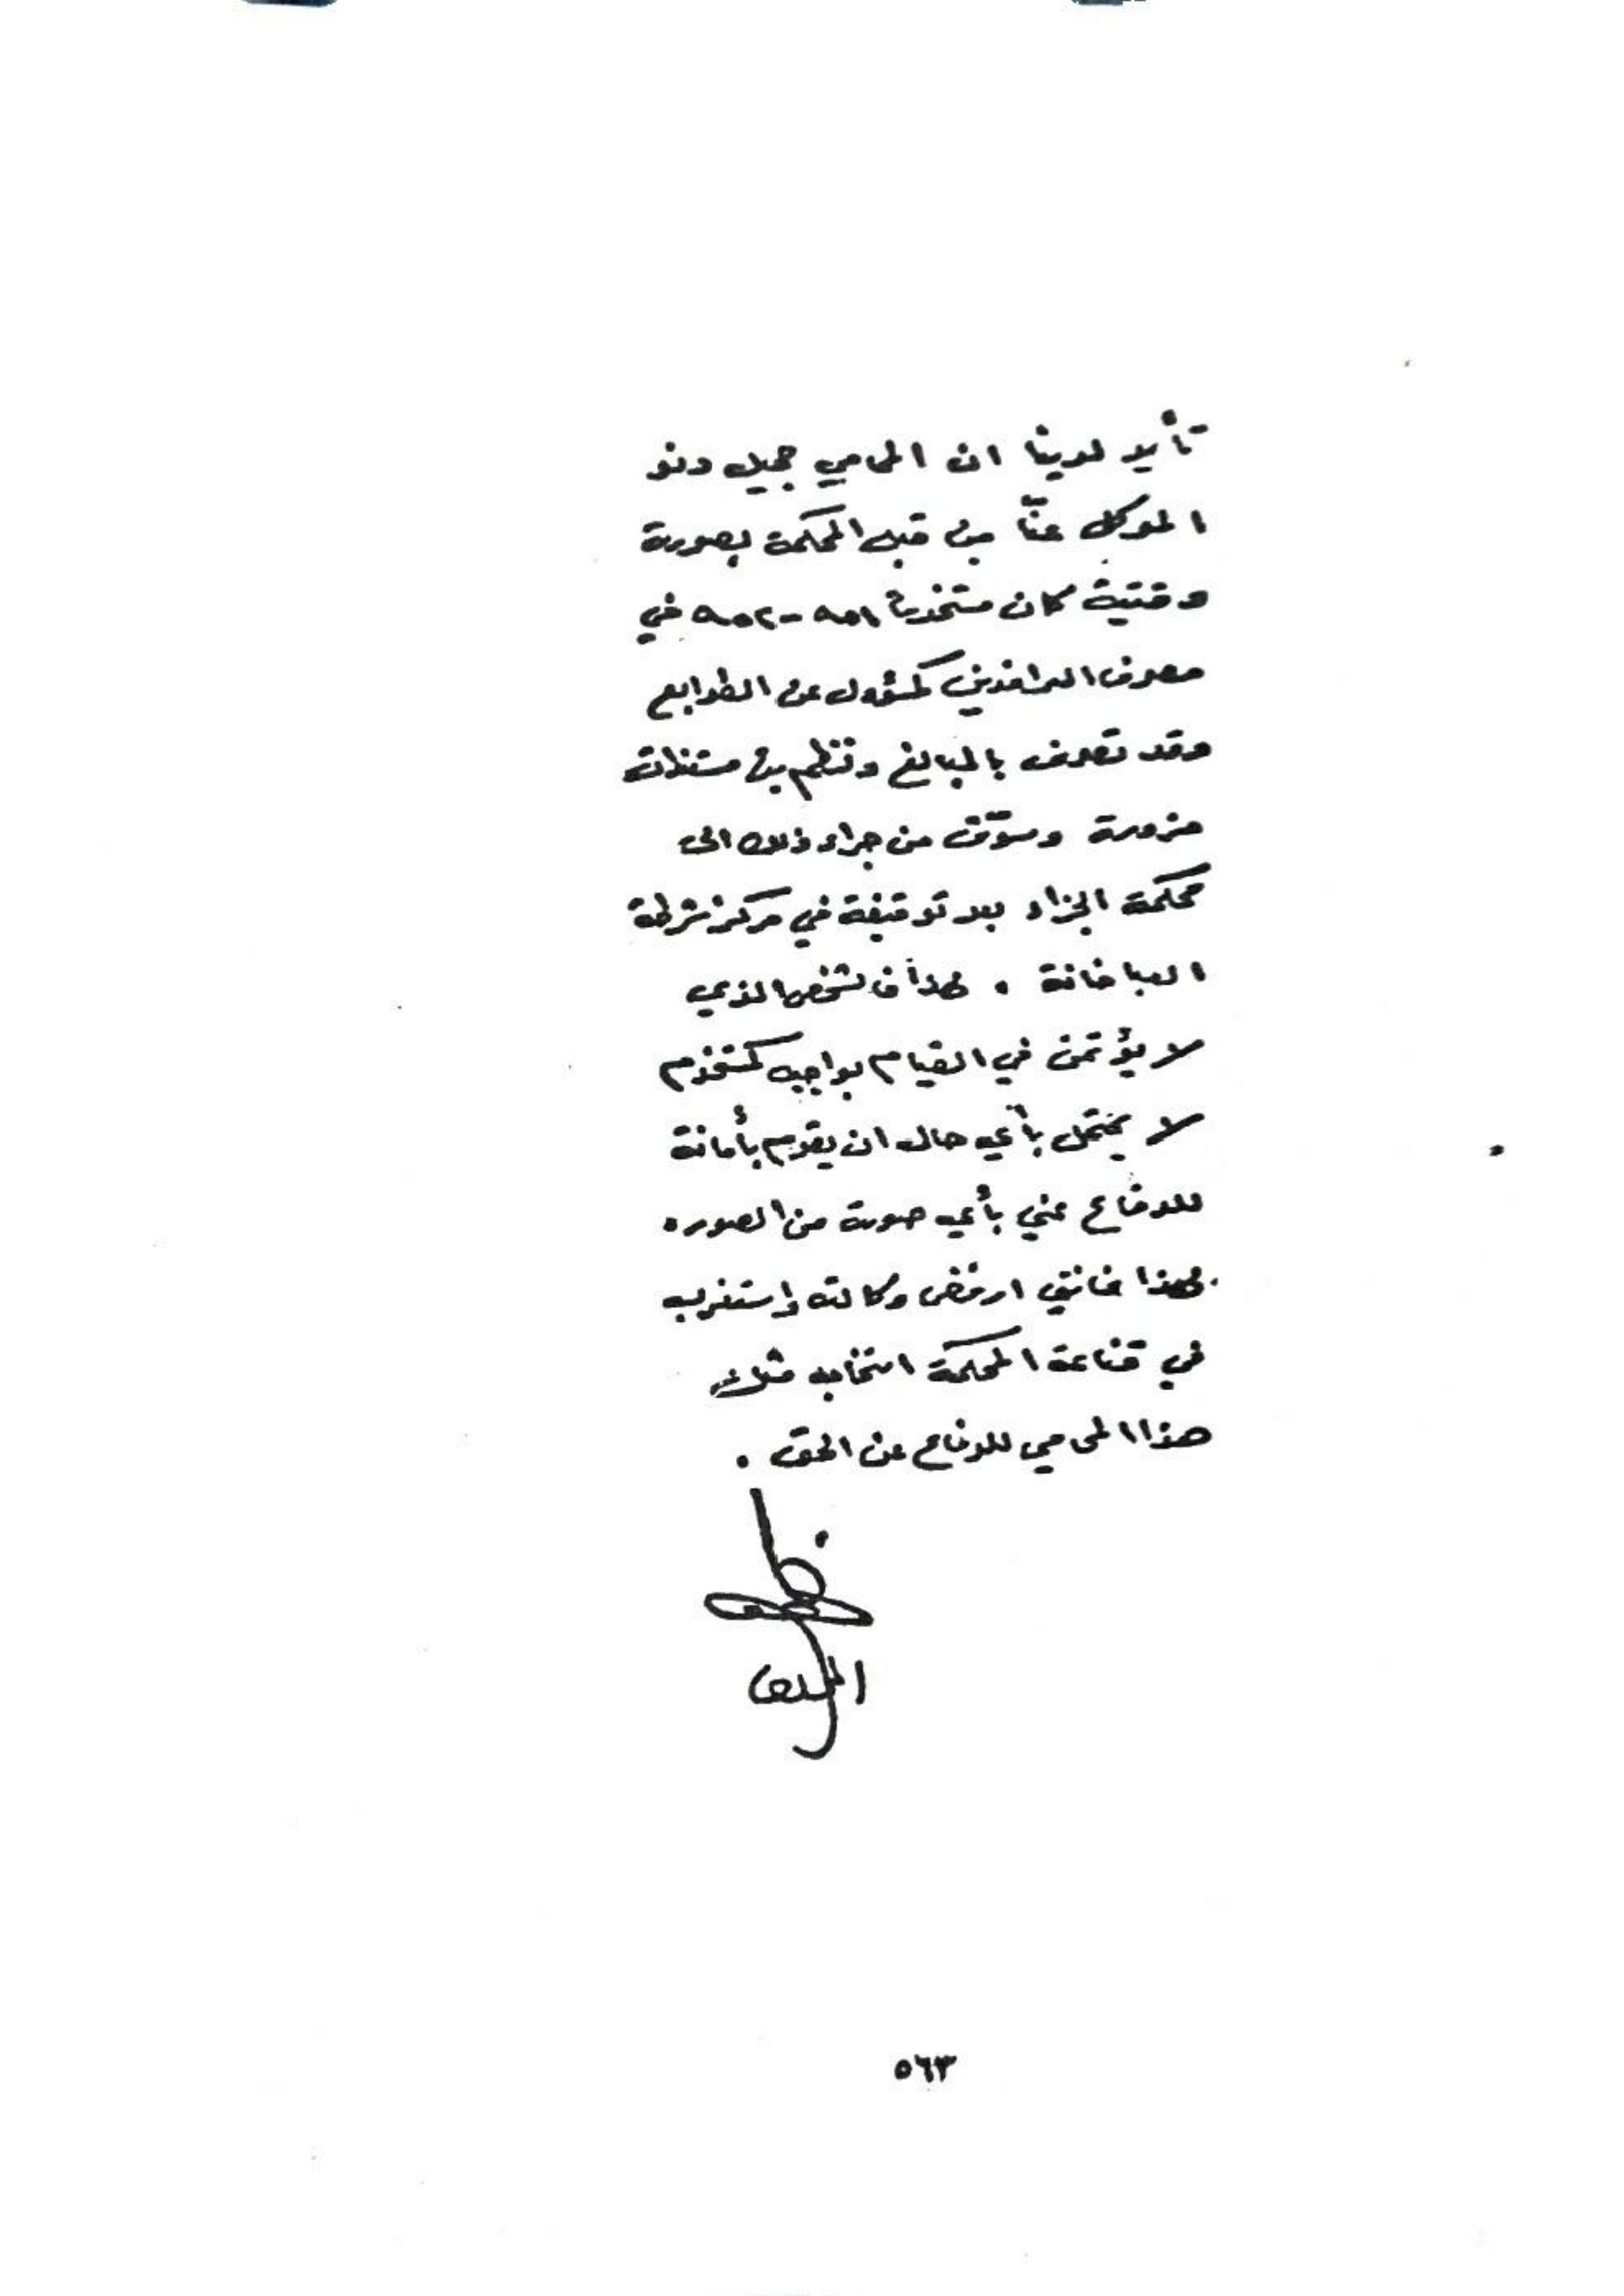 تأيد لدينا ان المحامي جميل دنو
الموكل عنّا من قبل المحكمة بصورة
وقتية كان مستخدماً ٩٥١-٩٥٢ في
مصرف الرافدين كمسؤول عن الطوابع
وقد تصرف بالمبالغ وتنظيم مستندات
مزورة وسوّق من جراء ذلك الى
محكمة الجزاء بعد توقيفة في مركز شرطة
العباخانة . لهذا فأن لشخص الذي
لا يؤتمن في القيام بواجبه كمستخدم
لا يحتمل بأي حال ان يقوم بأمانة
للدفاع عني بأي صورة من الصور .
لهذا فانني ارفض وكالته واستغرب
في قناعة المحكمة انتخاب مثل
هذا المحامي للدفاع عن الحق .
٥٦٣